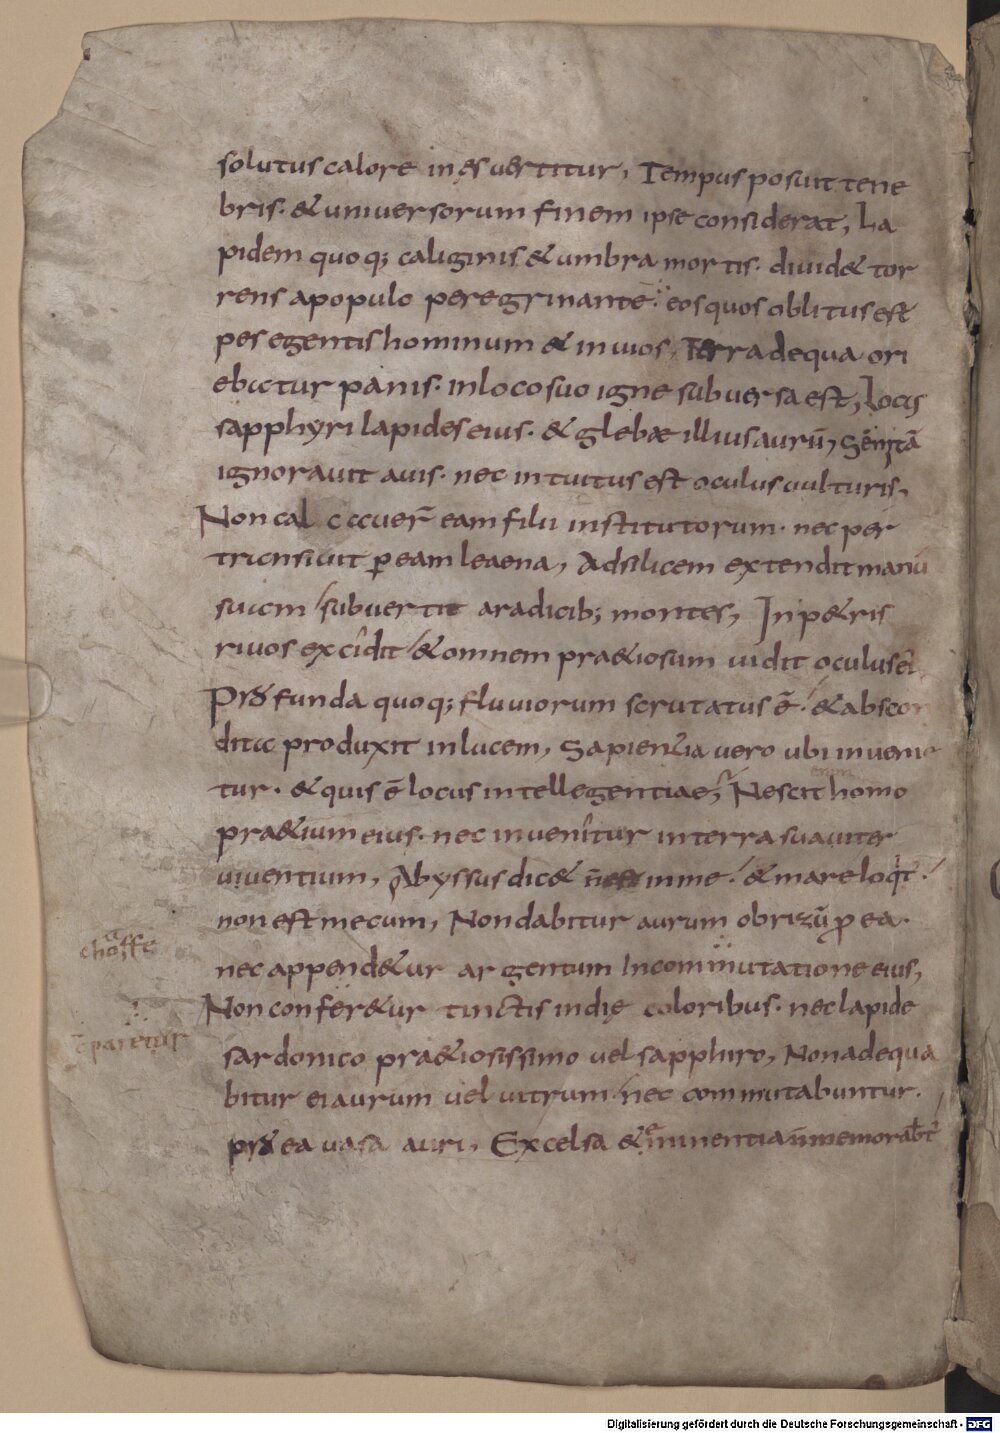 solutus calore in ęs uertitur, Tempus posuit tene
bris· & uniuersorum finem ipse considerat, La
pidem quoq; caliginis & umbra mortis· diuid& tor
rens a populo peregrinante· eos quos oblitus est
pes egentis hominum & inuios, Terra de qua ori
ebatur panis· in loco suo igne subuersa est, Locus
sapphyri lapides eius· & glebæ illius aurū, Semitā
ignorauit auis· nec intuitus est oculus uulturis,
Non cal cauer̄ eam filii institutorum· nec per
transiuit ꝑ eam leaena, Ad silicem extendit manū
suam subuertit a radicib; montes, In p&ris
riuos excidit & omnem pr&iosum uidit oculus ei
Profunda quoq; fluuiorum scrutatus ē· & abscon
dita produxit in lucem, Sapientia uero ubi inueni
tur· & quis ē locus intellegentiae, Nescit homo
pra&ium eius· nec inuenitur in terra suauiter
uiuentium, Abyssus dic& n̄ est in me· & mare loqt̄·
non est mecum, Non dabitur aurum obrizū ꝓ ea·
nec append&ur argentum in commutatione eius,
Non confer&ur tinctis indię coloribus· nec lapide
sardonico pra&iosissimo uel sapphiro, Non adequa
bitur ei aurum uel uitrum· nec commutabuntur·
pro ea uasa auri, Excelsa & eminentia n̄ memorabt̄
choaffe
cparetur
Digitalisierung gefördert durch die Deutsche Forschungsgemeinschaft - DFG